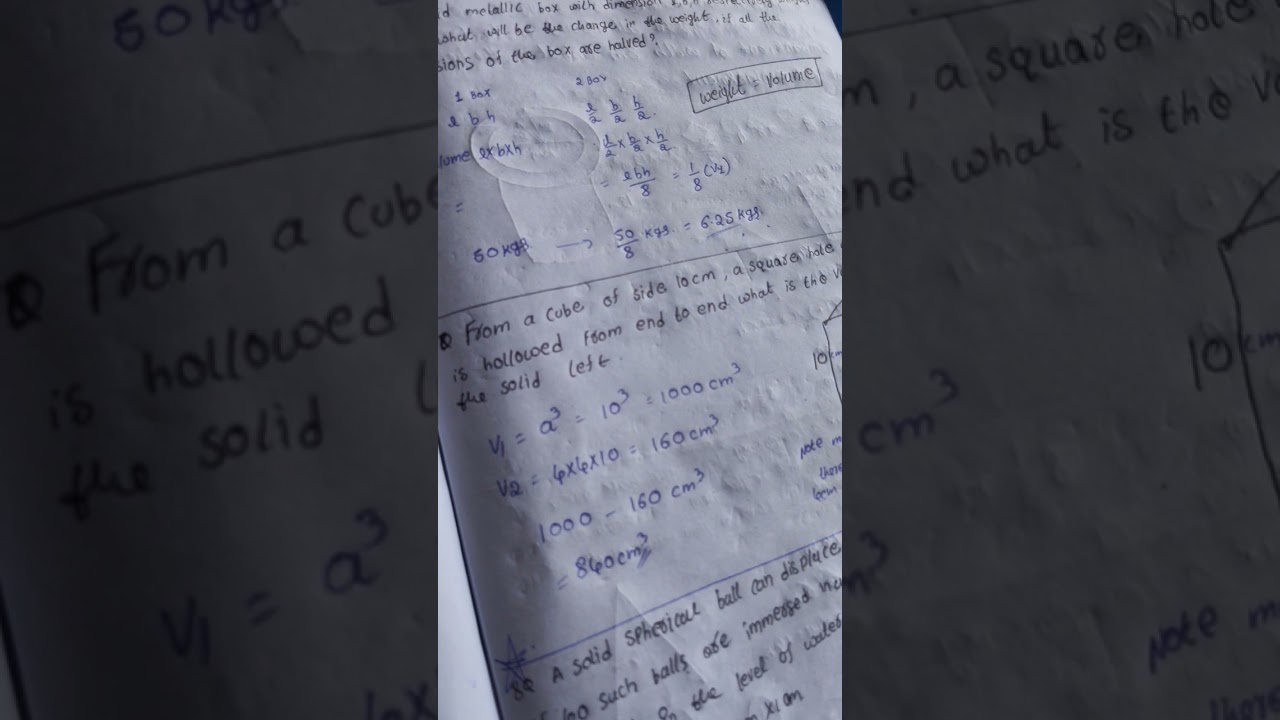 d metallic box with dimension
what will be the change in the weight if all the
sions of the box are halved?
1 Box
2 Box
weight = volume
l b h
l/2 b/2 h/2
lume l×b×h
l/2 × b/2 × h/2
= lbh/8 = 1/8 (V1)
=
50 kgs → 50/8 kgs = 6.25 kgs
Q From a cube of side 10cm, a square hole
is hollowed from end to end what is the v
the solid left.
10 cm
V1 = a³ = 10³ = 1000 cm³
V2 = 4×4×10 = 160 cm³
Note m
1000 - 160 cm³
= 840 cm³
8Q A solid spherical ball can displace
such balls are immersed
the level of water